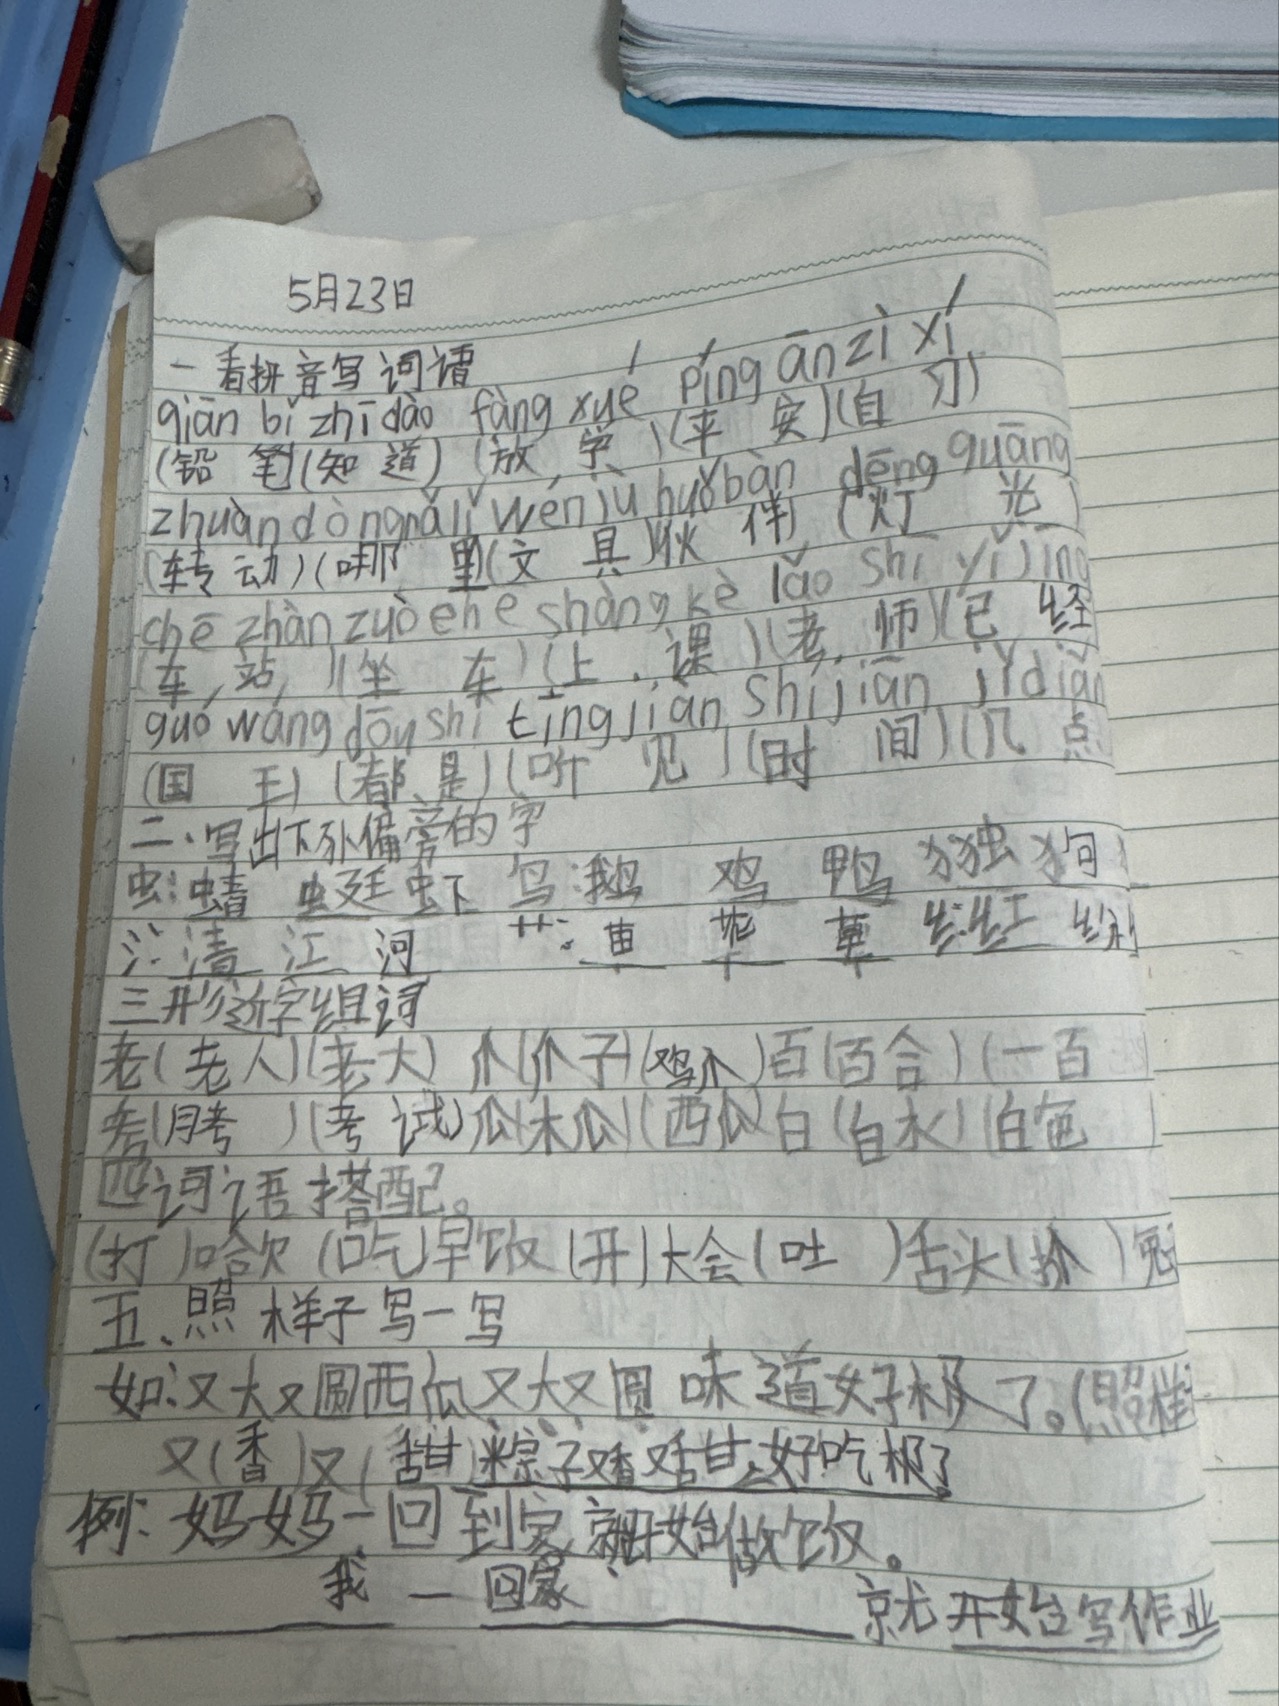 5月23日
一看拼音写词语
qiān bǐ zhī dào fàng xué píng ān zì xí
(铅 笔)(知 道)(放 学)(平 安)(自 习)
zhuàn dòng nǎ lǐ wén jù huǒ bàn dēng guāng
(转 动)(哪 里)(文 具)(伙 伴)(灯 光)
chē zhàn zuò chē shàng kè lǎo shī yǐ jīng
(车 站)(坐 车)(上 课)(老 师)(已 经
guó wáng dōu shì tīng jiàn shí jiān jǐ diǎn
(国 王)(都 是)(听 见)(时 间)(几 点
二、写出下列偏旁的字
虫:蜻 蜓 虾 鸟:鹅 鸡 鸭 犭独 狗
氵:清 江 河 艹: 苗 花 草 纟:红
三形近字组词
老(老人)(老大) 爪(爪子)(鸡爪)百(百合)(一百
考( )(考试)瓜(木瓜)(西瓜)白(白水)(白色)
四词语搭配。
(打)哈欠(吃)早饭(开)大会(吐)舌头(抓)兔
五、照样子写一写
如:又大又圆西瓜又大又圆味道好极了。(照样
又(香)又(甜)粽子又香又甜,好吃极了
例:妈妈一回到家就开始做饭。
我 一 回家 就开始写作业